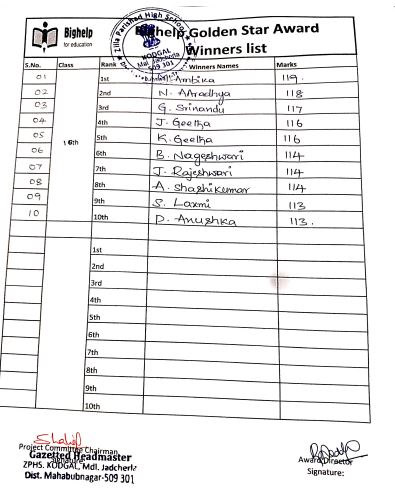 Bighelp
for education
Bighelp Golden Star Award
Winners list
Zilla Parishad High School
KODGAL
Mdl. Jadcherla
509 301
S.No. Class Rank Winners Names Marks
01 1st Ambika 119.
02 2nd N. AAradhya 118
03 3rd G. Srinandu 117
04 4th J. Geetha 116
05 5th K. Geetha 116
06 10th 6th B. Nageshwari 114
07 7th J. Rajeshwari 114
08 8th A. Shashikumar 114
09 9th S. Laxmi 113
10 10th D. Anushka 113.
1st
2nd
3rd
4th
5th
6th
7th
8th
9th
10th
Project Committee Chairman
Signature:
Gazetted Headmaster
ZPHS. KODGAL, Mdl. Jadcherla
Dist. Mahabubnagar-509 301
Award Director
Signature: